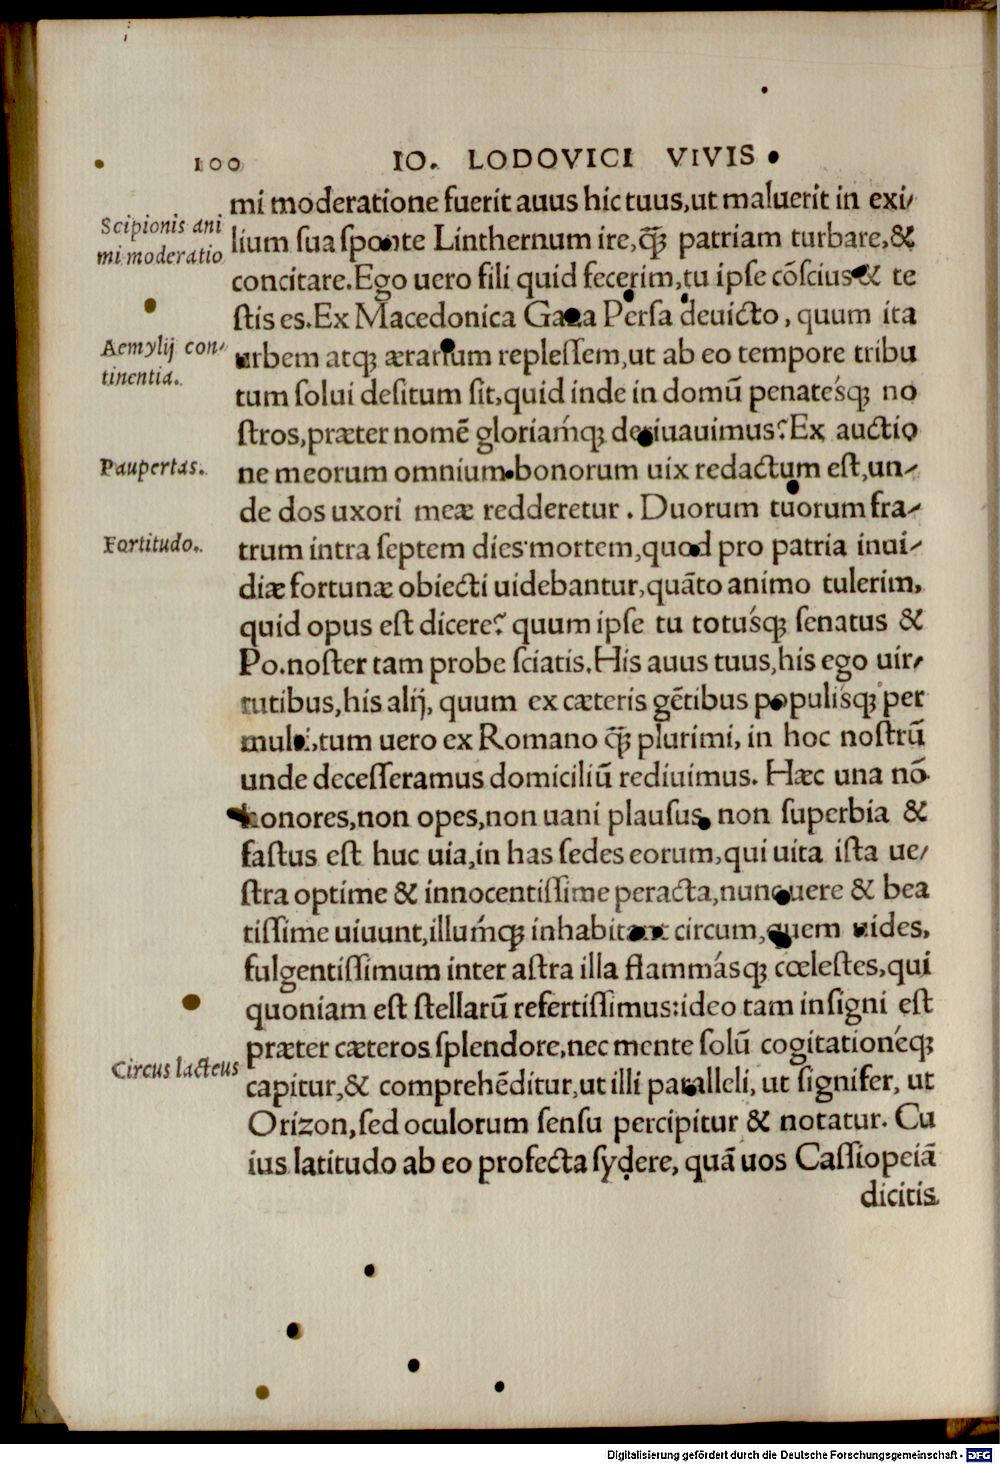 100 IO. LODOVICI VIVIS
mi moderatione fuerit auus hic tuus, ut maluerit in exi-
Scipionis ani
mi moderatio
lium sua sponte Linthernum ire, q̃ꝫ patriam turbare, &
concitare. Ego uero fili quid fecerim, tu ipse cõscius & te
stis es. Ex Macedonica Gaza Persa deuicto, quum ita
Aemylij con-
tinentia.
urbem atqꝫ ærarium replessem, ut ab eo tempore tribu
tum solui desitum sit, quid inde in domũ penatésqꝫ no
stros, præter nomẽ gloriaḿqꝫ deriuauimus? Ex auctio
Paupertas.
ne meorum omnium bonorum uix redactum est, un-
de dos uxori meæ redderetur. Duorum tuorum fra-
Fortitudo.
trum intra septem dies mortem, quod pro patria inui-
diæ fortunæ obiecti uidebantur, quãto animo tulerim,
quid opus est dicere? quum ipse tu totúsqꝫ senatus &
Po. noster tam probe sciatis. His auus tuus, his ego uir-
tutibus, his alij, quum ex cæteris gẽtibus populísqꝫ per
multi, tum uero ex Romano q̃ꝫ plurimi, in hoc nostrũ
unde decesseramus domiciliũ rediuimus. Hæc una nõ
honores, non opes, non uani plausus, non superbia &
fastus est huc uia, in has sedes eorum, qui uita ista ue-
stra optime & innocentissime peracta, nunc uere & bea
tissime uiuunt, illuḿqꝫ inhabitant circum, quem uides,
fulgentissimum inter astra illa flammásqꝫ cœlestes, qui
quoniam est stellarũ refertissimus: ideo tam insigni est
præter cæteros splendore, nec mente solũ cogitationéqꝫ
Circus lacteus
capitur, & comprehẽditur, ut illi paralleli, ut signifer, ut
Orizon, sed oculorum sensu percipitur & notatur. Cu
ius latitudo ab eo profecta sydere, quã uos Cassiopeiã
dicitis
Digitalisierung gefördert durch die Deutsche Forschungsgemeinschaft - DFG